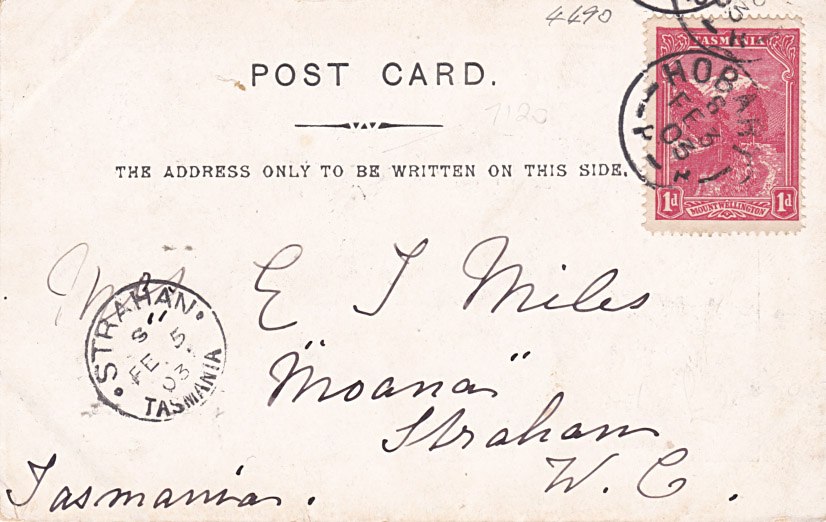 4490
TASMANIA
POST CARD.
HOBART
8
FE 3
03
1120
THE ADDRESS ONLY TO BE WRITTEN ON THIS SIDE.
1d MOUNT WELLINGTON 1d
E J Miles
STRAHAN
8
FE 5
03
TASMANIA
"Moana"
Strahan
W. C.
Tasmania.